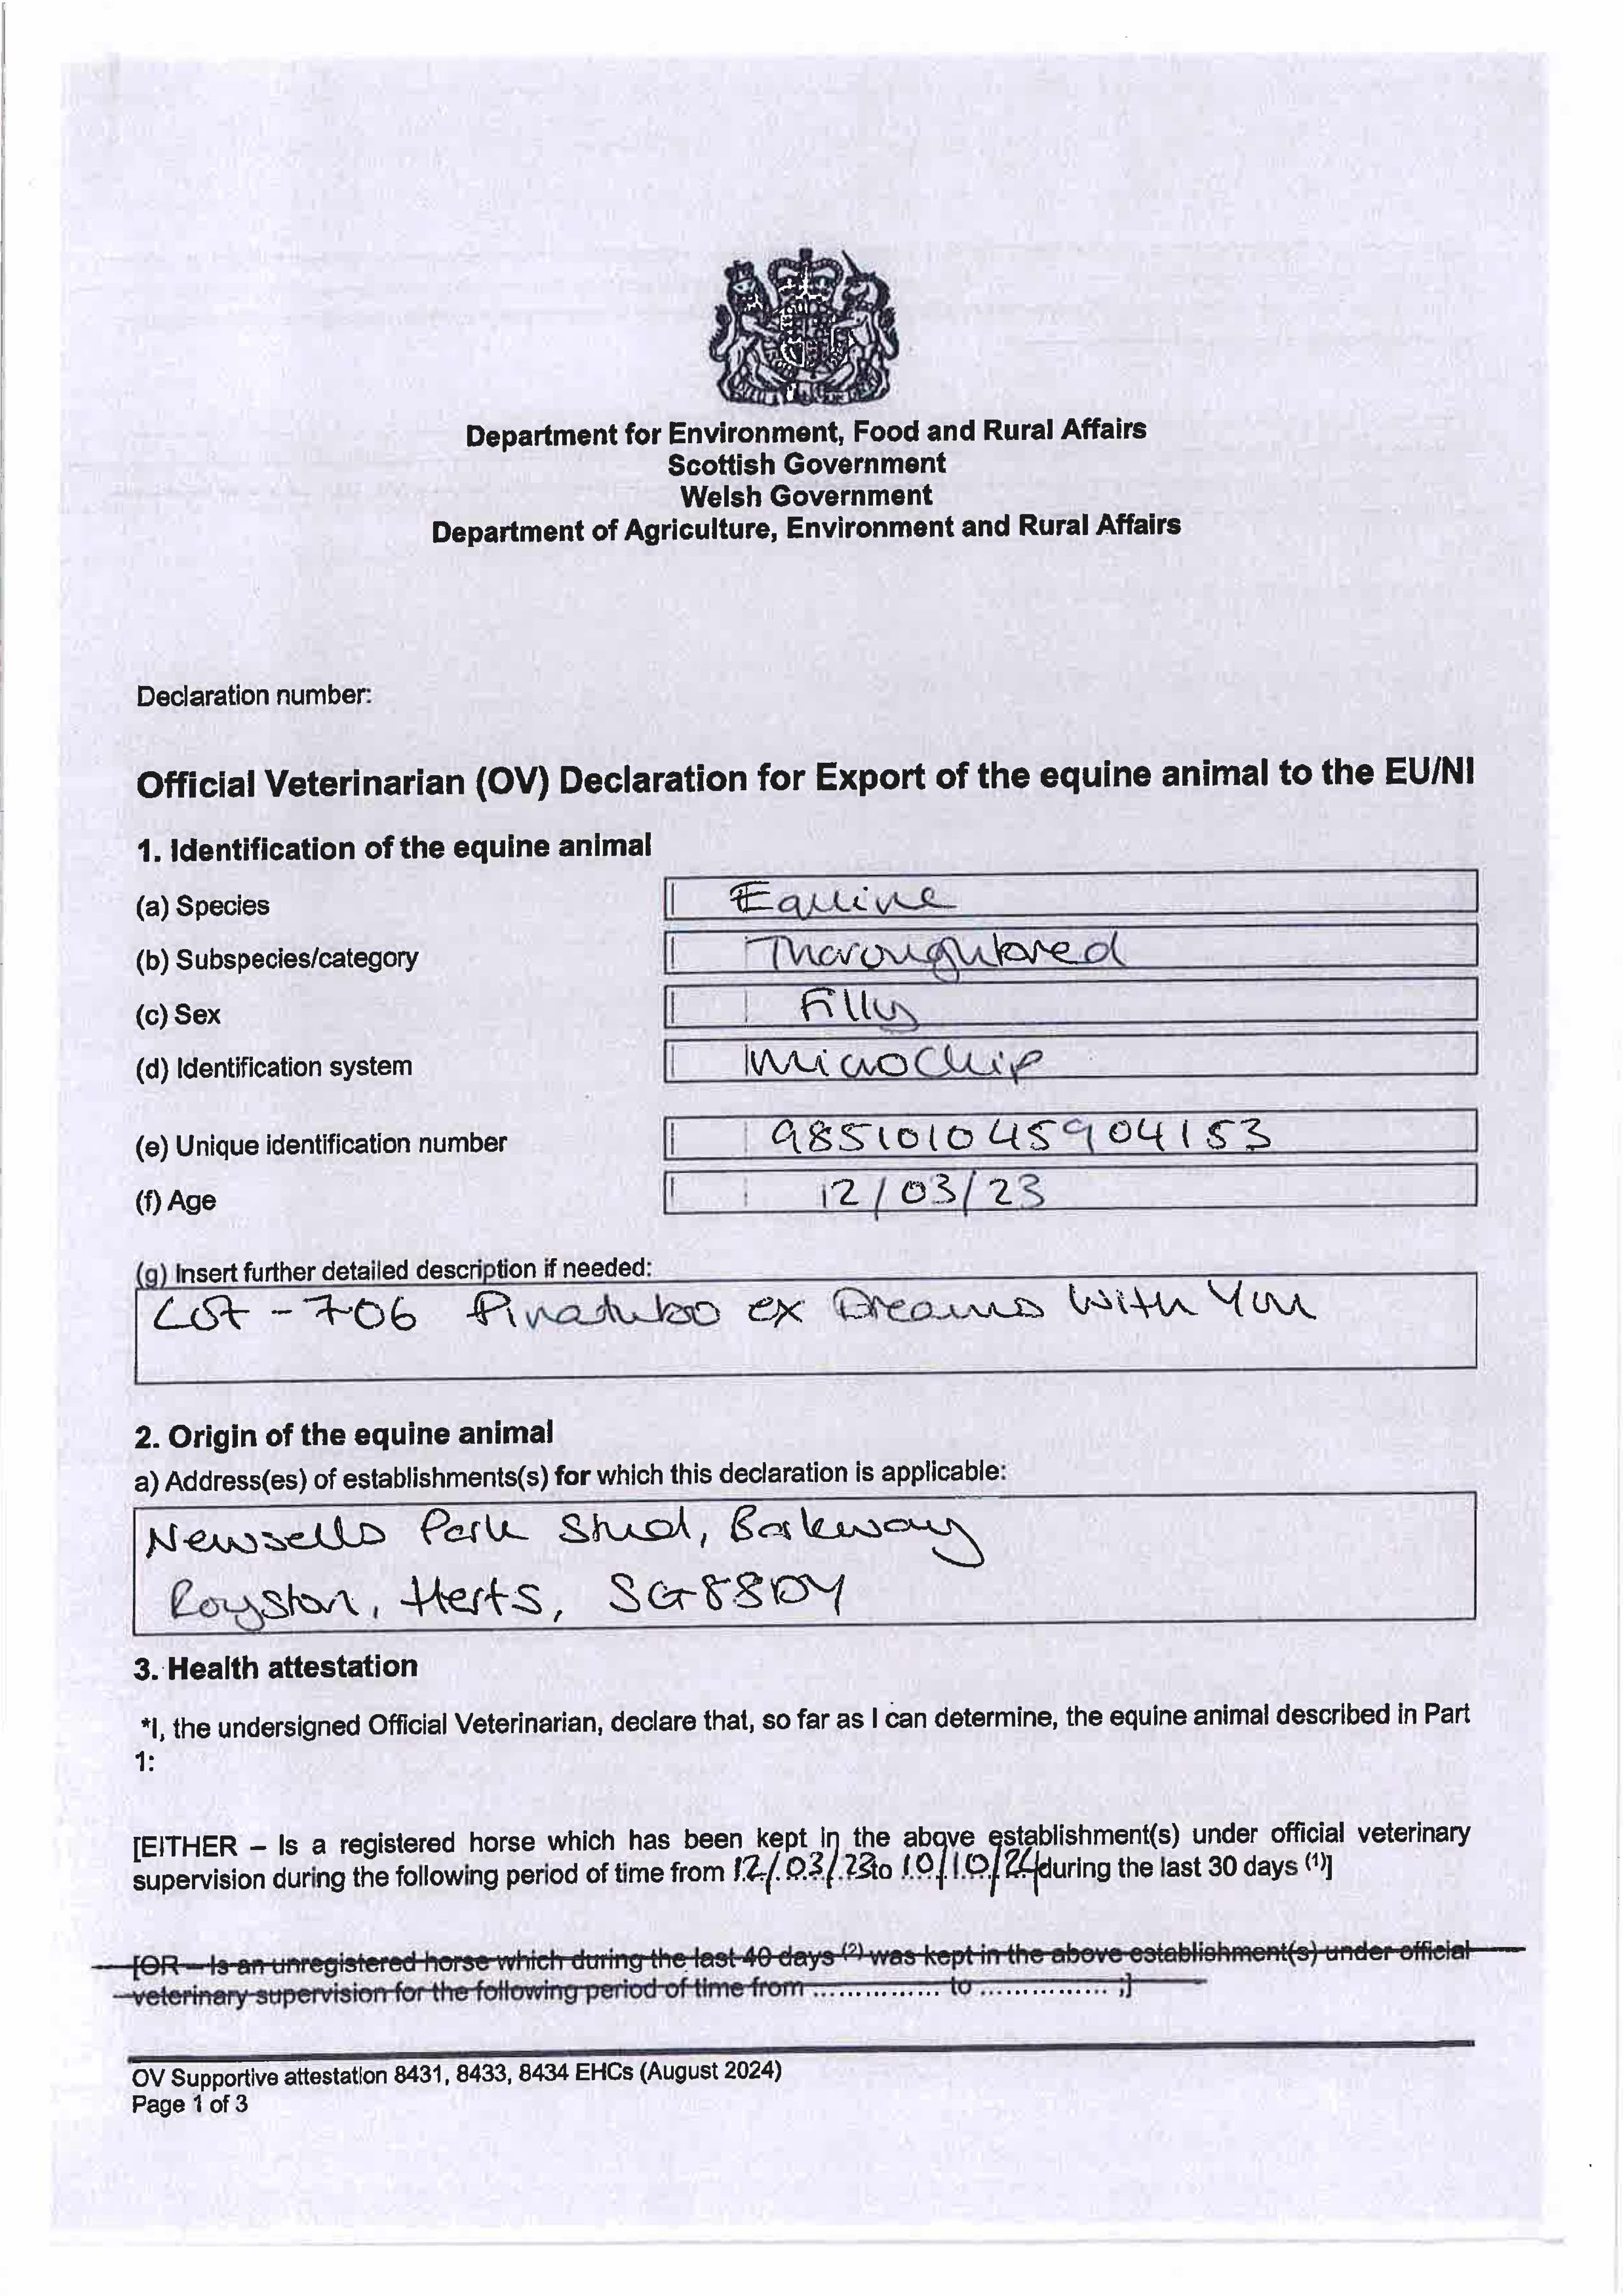 Department for Environment, Food and Rural Affairs
Scottish Government
Welsh Government
Department of Agriculture, Environment and Rural Affairs
Declaration number:
Official Veterinarian (OV) Declaration for Export of the equine animal to the EU/NI
1. Identification of the equine animal
(a) Species Equine
(b) Subspecies/category Thoroughbred
(c) Sex Filly
(d) Identification system Microchip
(e) Unique identification number 985101045904153
(f) Age 12/03/23
(g) Insert further detailed description if needed:
Lot - 706 Pinatubo ex Dreams With You
2. Origin of the equine animal
a) Address(es) of establishments(s) for which this declaration is applicable:
Newsells Park Stud, Barkway
Royston, Herts, SG88DY
3. Health attestation
*I, the undersigned Official Veterinarian, declare that, so far as I can determine, the equine animal described in Part
1:
[EITHER – Is a registered horse which has been kept in the above establishment(s) under official veterinary
supervision during the following period of time from 12/03/23 to 10/10/24 during the last 30 days (1)]
[OR – Is an unregistered horse which during the last 40 days (2) was kept in the above establishment(s) under official
veterinary supervision for the following period of time from ............... to ............... ;]
OV Supportive attestation 8431, 8433, 8434 EHCs (August 2024)
Page 1 of 3